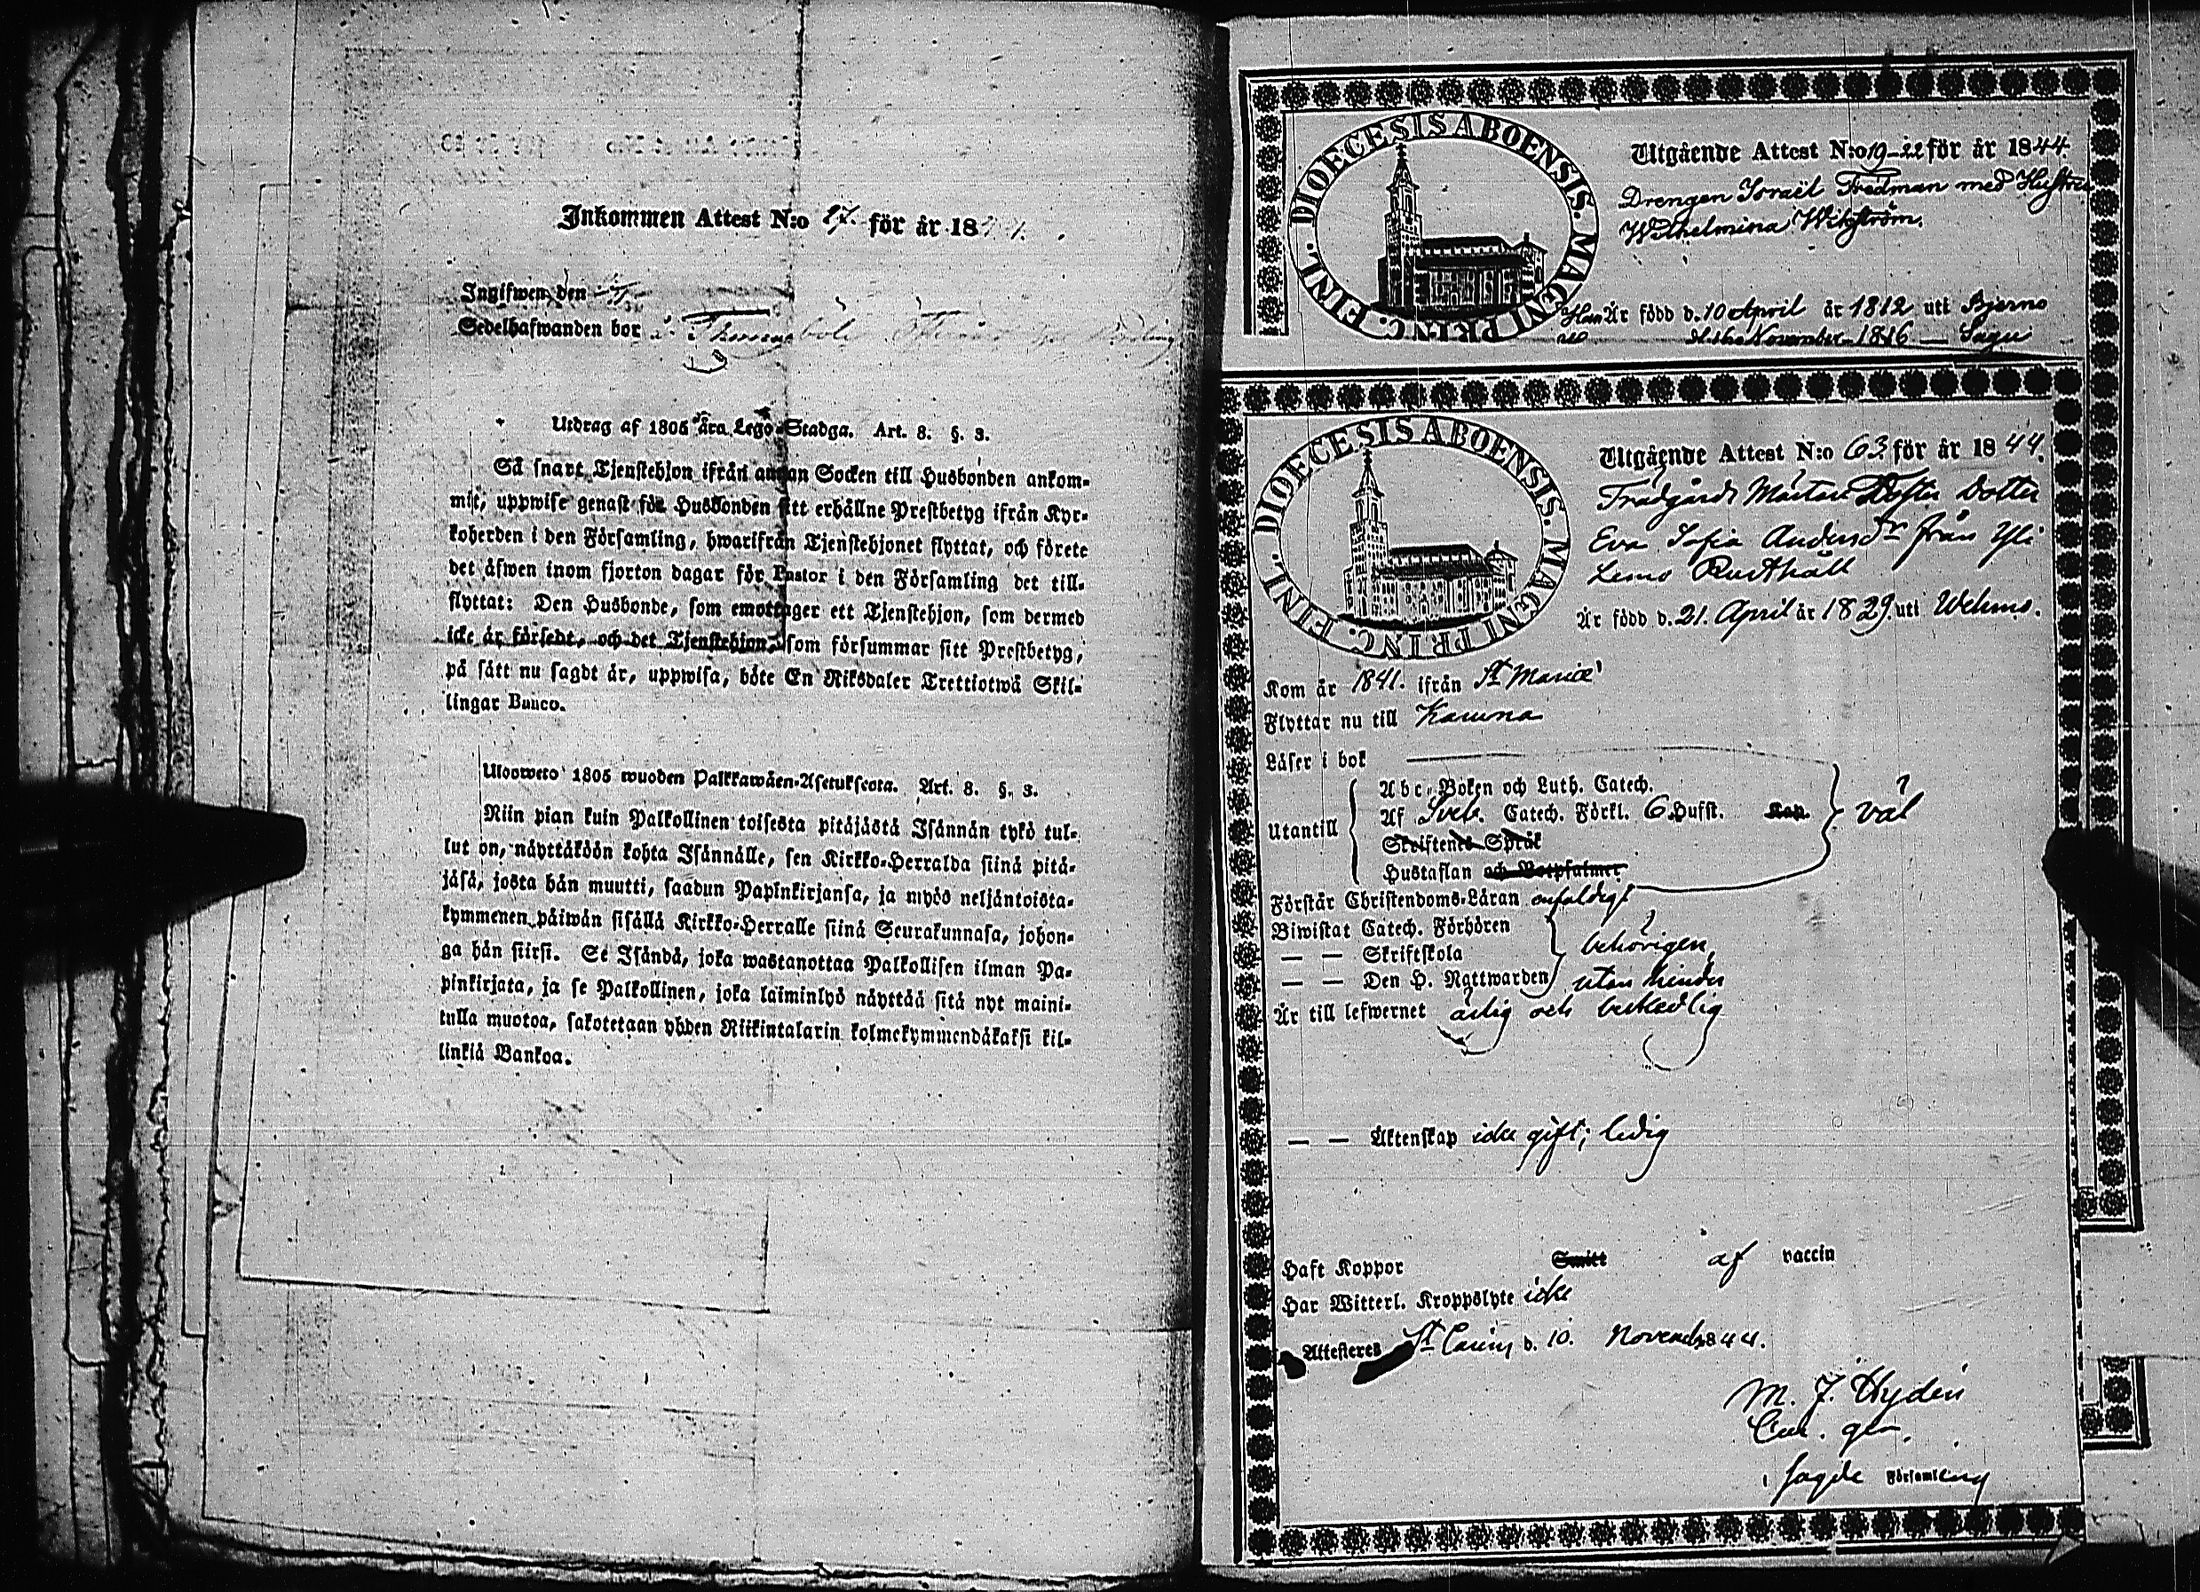 Inkommen Attest N:o 27. för år 18
Ingifwen den
Sedelhafwanden bor i
Utdrag af 1805 års Lego-Stadga. Art. 8. §. 3.
Så snart Tjenstehjon ifrån annan Socken till Husbonden ankom-
mit, uppwise genast för Husbonden sitt erhållne Prestbetyg ifrån Kyr-
koherden i den Församling, hwarifrån Tjenstehjonet flyttat, och förete
det äfwen inom fjorton dagar för Pastor i den Församling det till-
flyttat: Den Husbonde, som emottager ett Tjenstehjon, som dermed
icke är försedt, och det Tjenstehjon, som försummar sitt Prestbetyg,
på sätt nu sagdt är, uppwisa, böte En Riksdaler Trettiotwå Skil-
lingar Banco.
Ulosweto 1805 wuoden Palkkawäen-Asetuksesta. Art. 8. §. 3.
Niin pian kuin Palkollinen toisesta pitäjästä Isännän tykö tul-
lut on, näyttäköön kohta Isännälle, sen Kirkko-Herralda siinä pitä-
jäsä, josta hän muutti, saadun Papinkirjansa, ja myös neljäntoista-
kymmenen päiwän sisällä Kirkko-Herralle siinä Seurakunnasa, johon-
ga hän siirsi. Se Isändä, joka wastanottaa Palkollisen ilman Pa-
pinkirjata, ja se Palkollinen, joka laiminlyö näyttää sitä nyt maini-
tulla muotoa, sakotetaan yhden Riikintalarin kolmekymmendäkaksi kil-
linkiä Bankoa.
DIOECESIS ABOENSIS. MAGNI PRINC. FINL.
Utgående Attest N:o 19-22 för år 1844.
Drengen Israël Fredman med Hustru
Wilhelmina Wikström.
Han Är född d. 10 April år 1812 uti Bjerno
November 1816 — Sagu
DIOECESIS ABOENSIS. MAGNI PRINC. FINL.
Utgående Attest N:o 63 för år 1844.
Trädgårds Mästare Dotter
Eva Sofia Andersdr från Yli
Lemo Rusthåll
Är född d. 21. April år 1829. uti Wehmo.
Kom år 1841. ifrån St Mariæ
Flyttar nu till Karuna
Läser i bok
Utantill
Abc-Boken och Luth. Catech.
Af Sveb. Catech. Förkl. 6 Hufst. Kap.
Skriftenes Språk
Hustaflan och Botpsalmer
väl
Förstår Christendoms-Läran enfaldigt
Biwistat Catech. Förhören
— — Skriftskola
— — Den H. Nattwarden
behörigen,
utan hinder
Är till lefwernet ärlig och beskedlig
— — Äktenskap icke gift; ledig
Haft Koppor Smitt af vaccin
Har Witterl. Kroppslyte icke
Attesteres St Carins d. 10. November 1844.
M. J. Hydén
sagde Församling